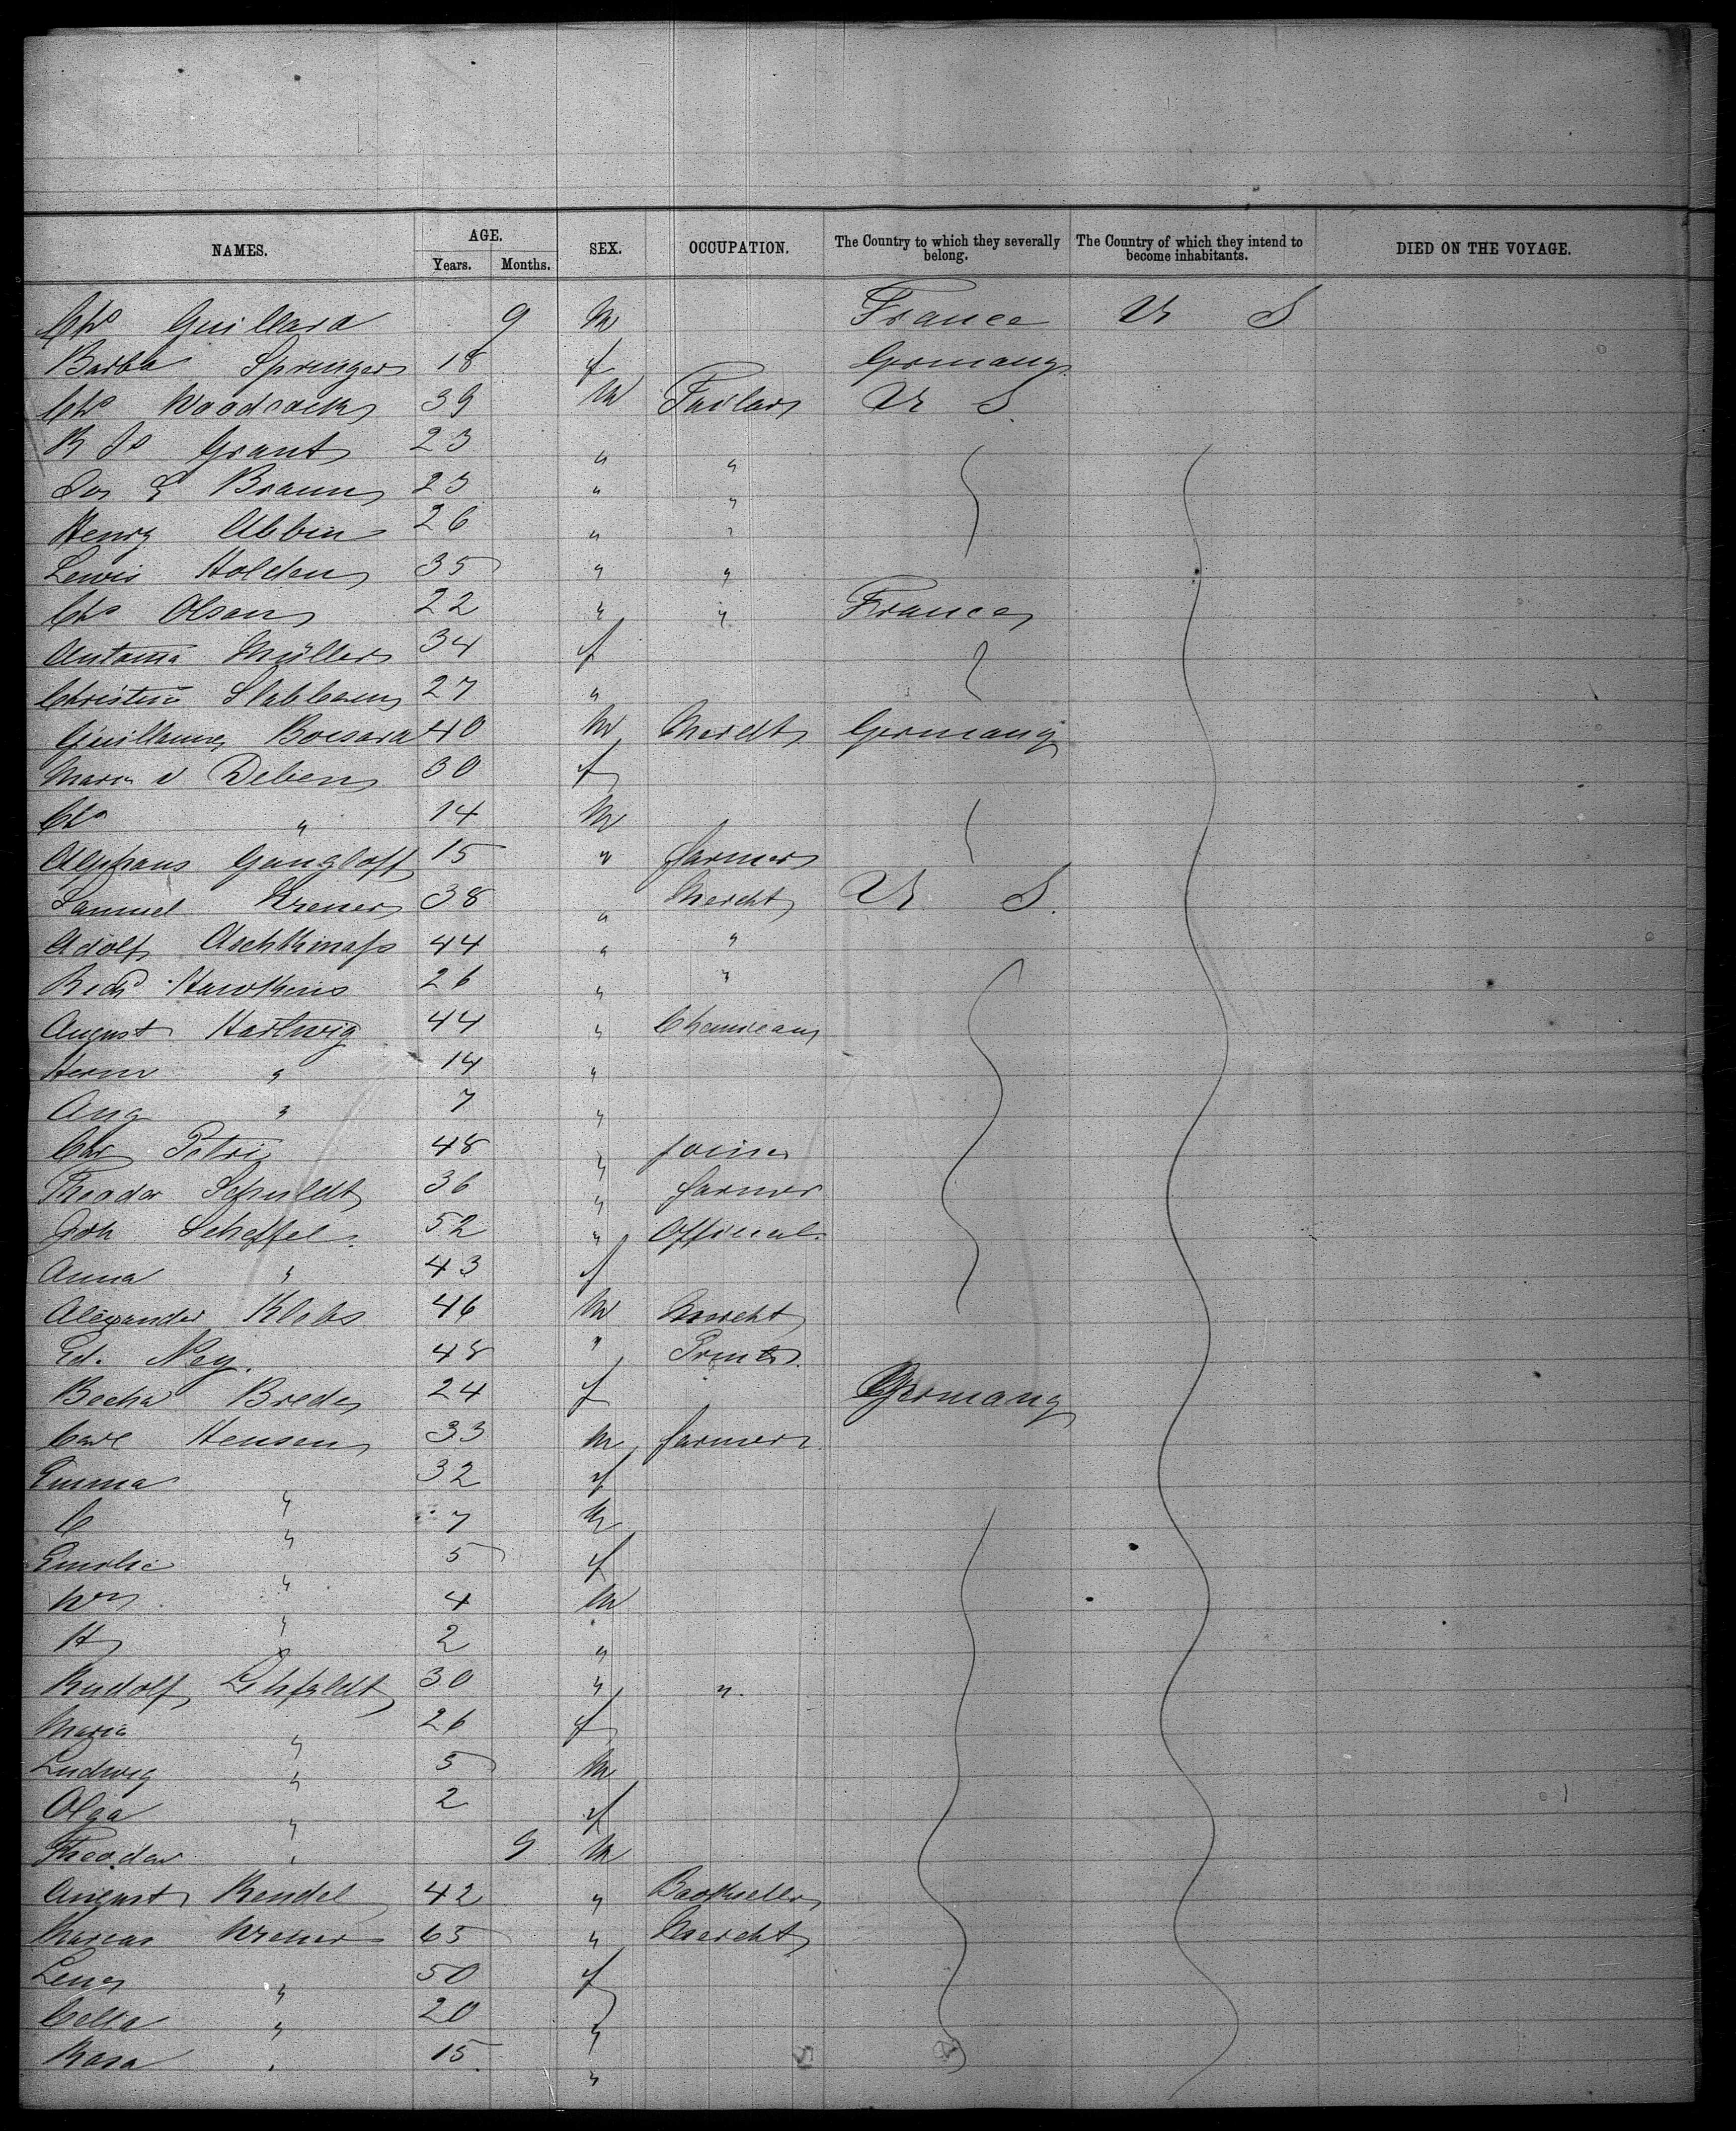 NAMES. AGE. SEX. OCCUPATION. The Country to which they severally belong. The Country of which they intend to become inhabitants. DIED ON THE VOYAGE.
Years. Months.
Chs Guillard 9 M France U S
Barba Springer 18 f Germany
Chs Woodcock 39 M Tailor U S
R Js Grant 23 " "
Jos G Braun 23 " "
Henry Abbin 26 " "
Lewis Holden 35 " "
Chs Olsen 22 " " France
Antonia Müller 34 f
Christina 27 "
Guillaume 40 M Mercht Germany
Maria v Deben 30 f
Chs " 14 M
Alphons Gangloff 15 " farmer
Samuel Krener 38 " Mercht U S.
Adolf Aschkinass 44 " "
Richd Hawkins 26 " "
August Hartwig 44 "
Herm " 14 "
Aug " 7 "
Chr Petri 48 " joiner
Theodor Schuldt 36 " farmer
Joh Scheffel. 52 " Official.
Anna " 43 f
Alexander Klebs 46 M Mercht
Ed. Ney. 48 " Printer.
Becha Brede 24 f Germany
Carl Hensen 33 M farmer
Emma " 32 f
C " 7 M
Emilie " 5 f
Wm " 4 M
H " 2 "
Rudolf 30 " ".
Maria " 26 f
Ludwig " 5 M
Olga " 2 f
Theodor " 9 M
August Rendel 42 " Bookseller
Marcus Krener 65 " Mercht
Lena " 50 f
Celia " 20 "
Rosa " 15. "